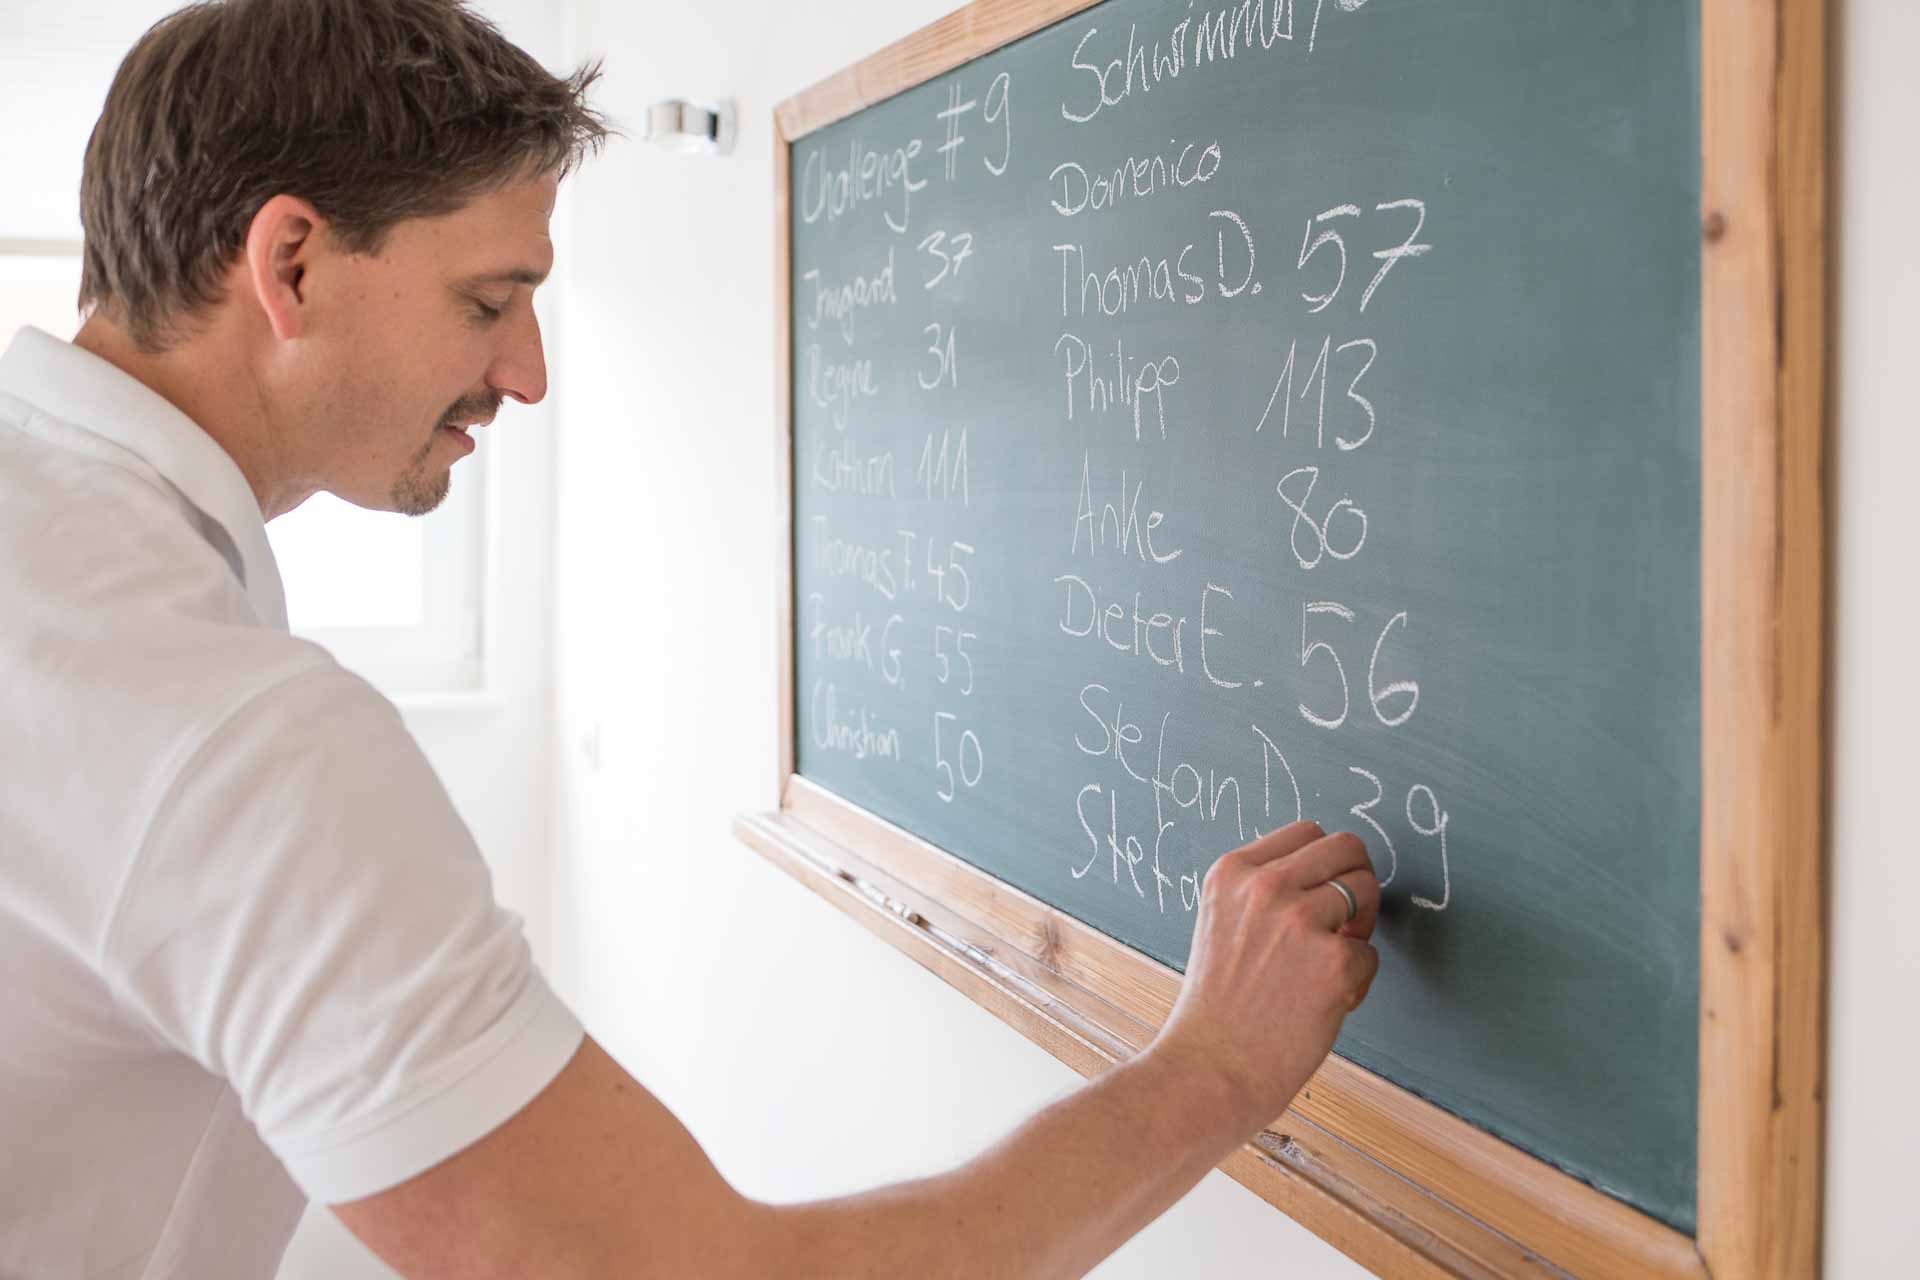 Challenge #9
Irmgard 37
Regine 31
Kathrin 111
Thomas F. 45
Frank G. 55
Christian 50
Schwimmer
Domenico
Thomas D. 57
Philipp 113
Anke 80
Dieter E. 56
Stefan D. 39
Stefa